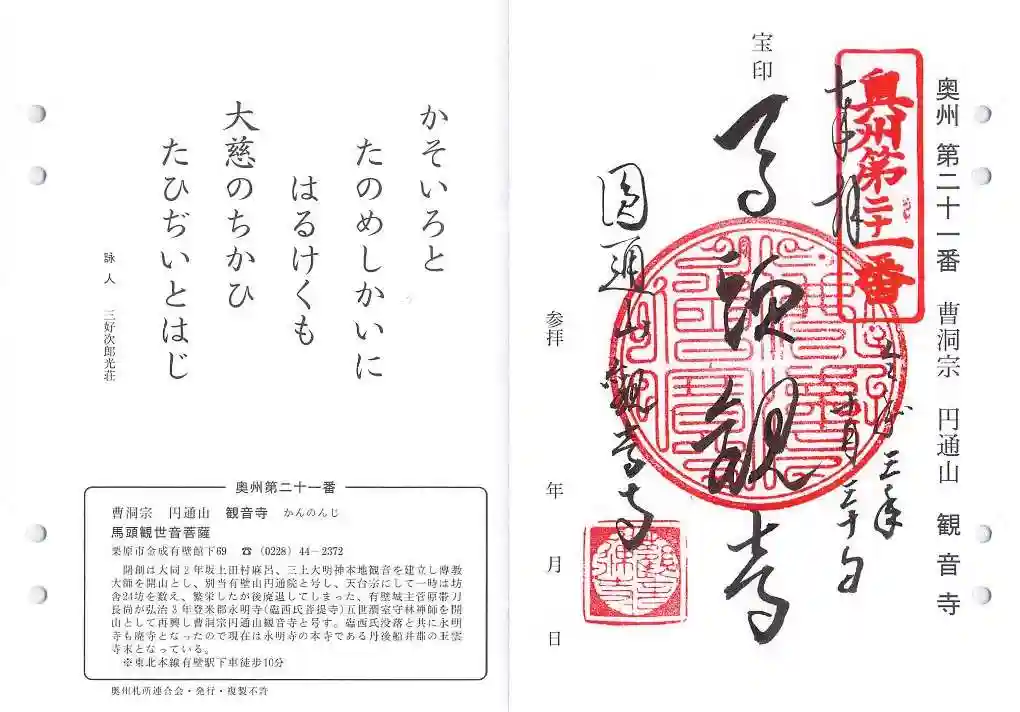 奥州 第二十一番 曹洞宗 円通山 観音寺
奥州第二十一番
奉拝
令和三年
十月三十日
宝印
馬頭観音
圓通山観音寺
参拝 年 月 日
かそいろと
たのめしかいに
はるけくも
大慈のちかひ
たひぢいとはじ
詠人 三好次郎光荘
奥州第二十一番
曹洞宗 円通山 観音寺 かんのんじ
馬頭観世音菩薩
栗原市金成有壁館下69 ☎(0228)44−2372
開創は大同2年坂上田村麻呂、三上大明神本地観音を建立し傳教
大師を開山とし、別当有壁山円通院と号し、天台宗にして一時は坊
舎24坊を数え、繁栄したが後廃退してしまった、有壁城主菅原帯刀
長尚が弘治3年登米郡永明寺(臨西氏菩提寺)五世濶室守林禅師を開
山として再興し曹洞宗円通山観音寺と号す。臨西氏没落と共に永明
寺も廃寺となったので現在は永明寺の本寺である丹後船井郡の玉雲
寺末となっている。
※東北本線有壁駅下車徒歩10分
奥州札所連合会・発行・複製不許